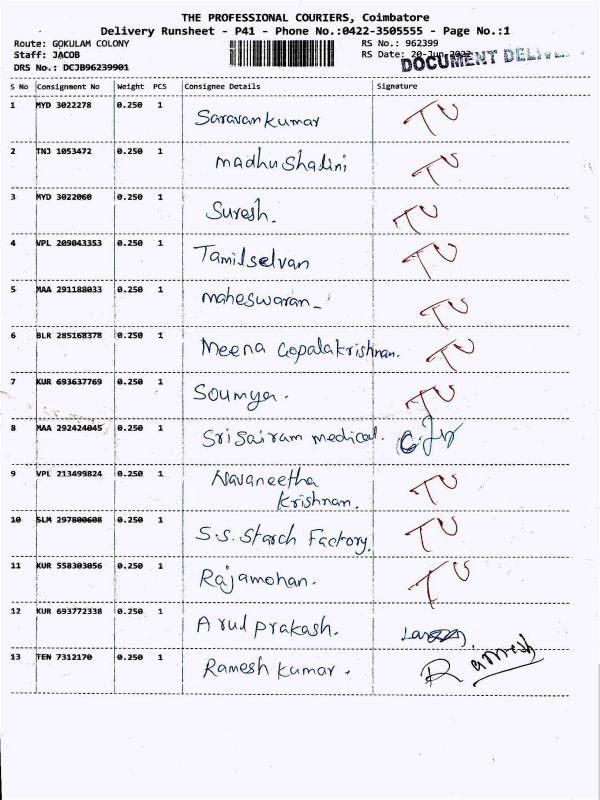 THE PROFESSIONAL COURIERS, Coimbatore
Delivery Runsheet - P41 - Phone No.:0422-3505555 - Page No.:1
Route: GOKULAM COLONY RS No.: 962399
Staff: JACOB RS Date: 20-Jun-2022
DRS No.: DCJB96239901 DOCUMENT
S No Consignment No Weight PCS Consignee Details Signature
1 MYD 3022278 0.250 1 Saravankumar TU
2 TNJ 1053472 0.250 1 madhu Shalini TU
3 MYD 3022060 0.250 1 Suresh. TU
4 VPL 209043353 0.250 1 Tamilselvan TU
5 MAA 291188033 0.250 1 maheswaran - TU
6 BLR 285168378 0.250 1 Meena Gopalakrishnan. TU
7 KUR 693637769 0.250 1 Soumya. TU
8 MAA 292424045 0.250 1 Sri Sairam medical.
9 VPL 213499824 0.250 1 Navaneetha TU
Krishnan.
10 SLM 297800608 0.250 1 S.S. Starch Factory. TU
11 KUR 558303056 0.250 1 Rajamohan. TU
12 KUR 693772338 0.250 1 Arul prakash.
13 TEN 7312170 0.250 1 Ramesh kumar. Ramesh